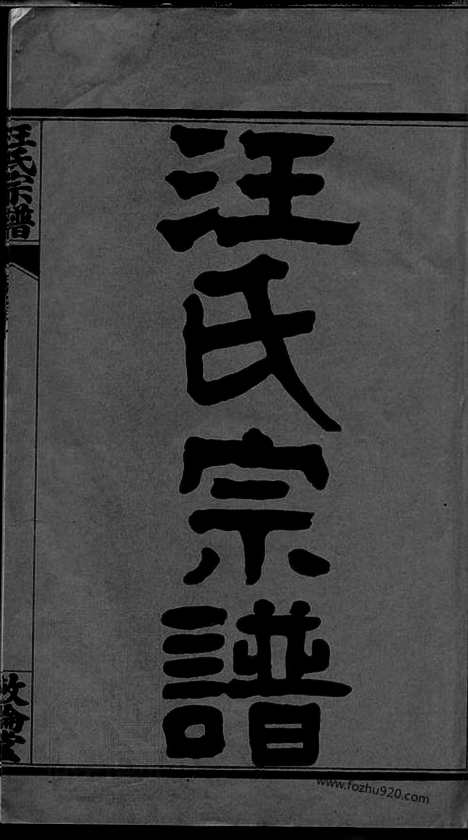 汪氏宗譜
汪氏宗譜
www.fozhu920.com